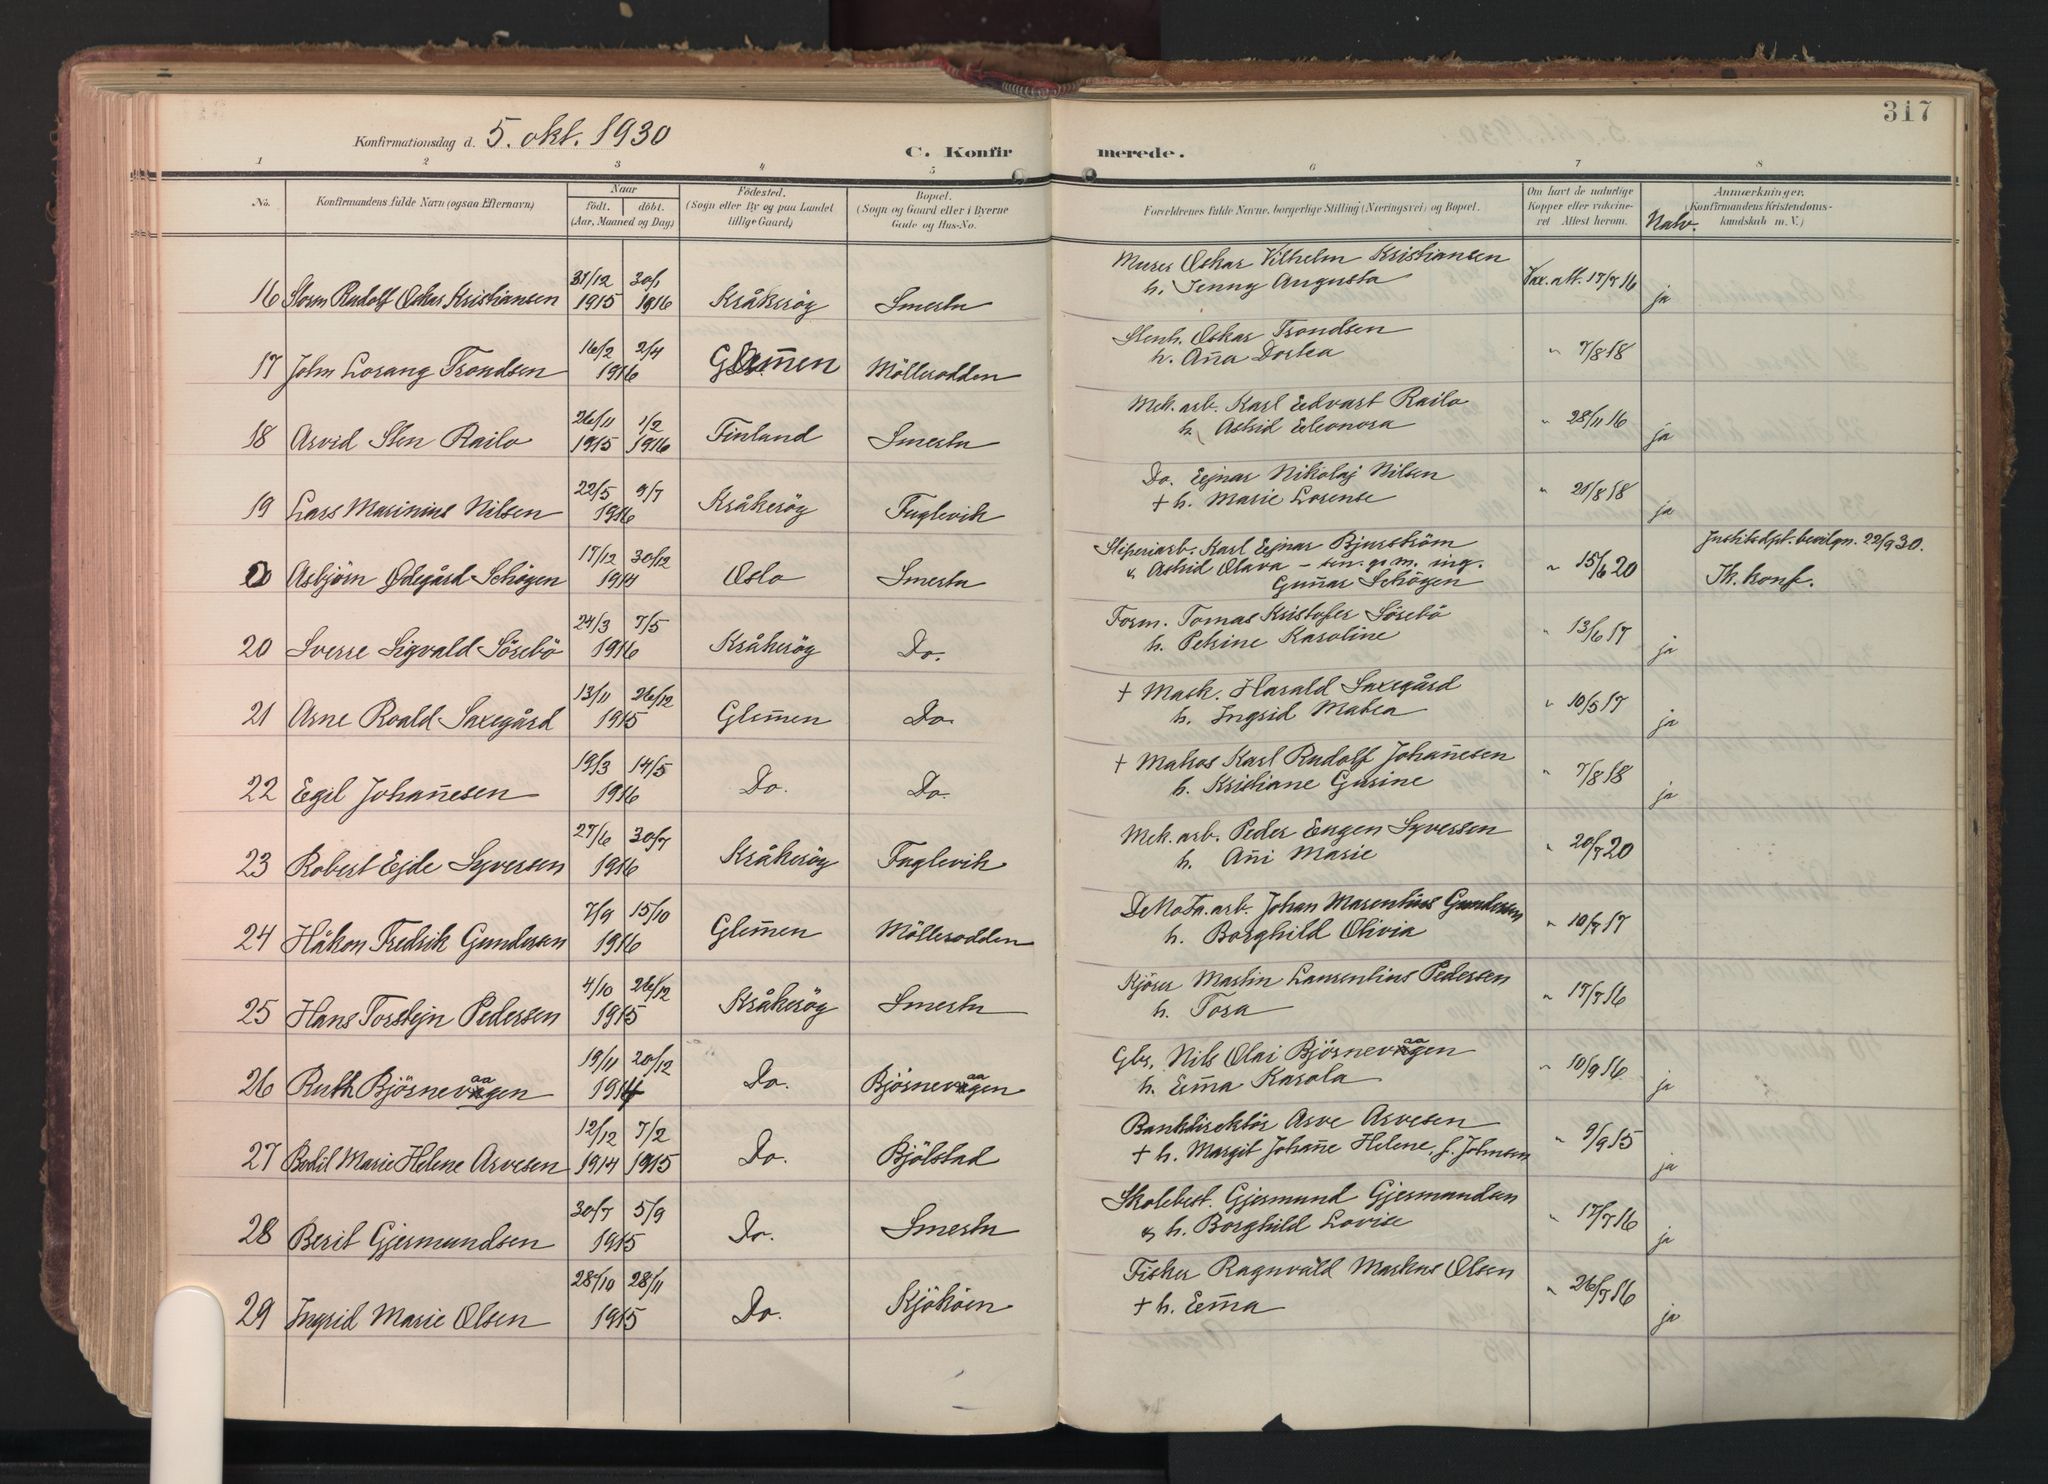 317
Konfirmationsdag d. 5. okt. 1930
C. Konfirmerede.
1 2 3 4 5 6 7 8
No. Konfirmandens fulde Navn (ogsaa Efternavn) Naar født. døbt. (Aar, Maaned og Dag) Födested. (Sogn eller By og paa Landet tillige Gaard) Bopæl. (Sogn og Gaard eller i Byerne Gade og Hus-No. Forældrenes fulde Navne, borgerlige Stilling (Næringsvei) og Bopæl. Om havt de naturlige Kopper eller vakcineret Attest herom. Nalv. Anmærkninger. (Konfirmandens Kristendomskundskab m. V.)
31/12 30/1 Murer Oskar Vilhelm Kristiansen
16 Storm Rudolf Oskar Kristiansen 1915 1916 Kråkeröy Smertu h. Jenny Augusta Vax. att. 17/7 16 ja
16/2 2/4 Stenh. Oskar Trondsen
17 John Lorang Trondsen 1916 Glem̅en Möllerodden h. An̅a Dortea " 7/8 18
26/11 1/2 Mek. arb. Karl Edvart Railo
18 Arvid Sten Railo 1915 1916 Finland Smertu h. Astrid Eleonora " 28/11 16 ja
22/5 9/7 Do. Ejnar Nikolaj Nilsen
19 Lars Marinius Nilsen 1916 Kråkeröy Fuglevik + h. Marie Lorense " 21/8 18 ja
17/12 30/12 Sliperiarb. Karl Ejnar Bjurström Justitsdpt. bevilgn. 22/9 30.
0 Asbjörn Ødegård Schögen 1914 Oslo Smertu & Astrid Olava – " 15/6 20 Tk. konf.
Gun̅ar Schögen
24/3 7/5 Form. Tomas Kristofer Sörebö
20 Sverre Sigvald Sörebö 1916 Kråkeröy Do. h. Petrine Karoline " 13/6 17 ja
13/11 26/12 + Mask. Harald Saxegård
21 Arne Roald Saxegård 1915 Glem̅en Do. h. Ingrid Matea " 10/5 17 ja
19/3 14/5 + Matros Karl Rudolf Johan̅esen
22 Egil Johan̅esen 1916 Do. Do. h. Kristiane Gusine " 7/8 18 ja
27/6 30/7 Mek. arb. Peder Eugen Syversen
23 Robert Ejde Syversen 1916 Kråkeröy Fuglevik h. An̅i Marie " 20/7 20
7/9 15/10 DeNoFa. arb. Johan Marentius Gundersen
24 Håkon Fredrik Gundersen 1916 Glem̅en Möllerodden h. Borghild Olivia " 10/7 17
4/10 26/12 Kjörer Martin Laurentius Pedersen
25 Hans Torstejn Pedersen 1915 Kråkeröy Smertu h. Tora " 17/7 16
19/11 20/12 Gbr. Nils Olai Björnevaagen
26 Ruth Björnevaagen 1914 Do. Björnevaagen h. Em̅a Karola " 10/9 16 ja
12/12 7/2 Bankdirektör Arve Arvesen
27 Bodil Marie Helene Arvesen 1914 1915 Do. Bjölstad + h. Margit Johan̅e Helene, f. Johnsen " 9/9 15 ja
30/7 5/9 Skolebest. Gjermund Gjermundsen
28 Berit Gjermundsen 1915 Do. Smertu & h. Borghild Lovise " 17/7 16 ja
28/10 28/11 Fisker Ragnvald Markus Olsen
29 Ingrid Marie Olsen 1915 Do. Kjököen + h. Em̅a " 26/7 16 ja